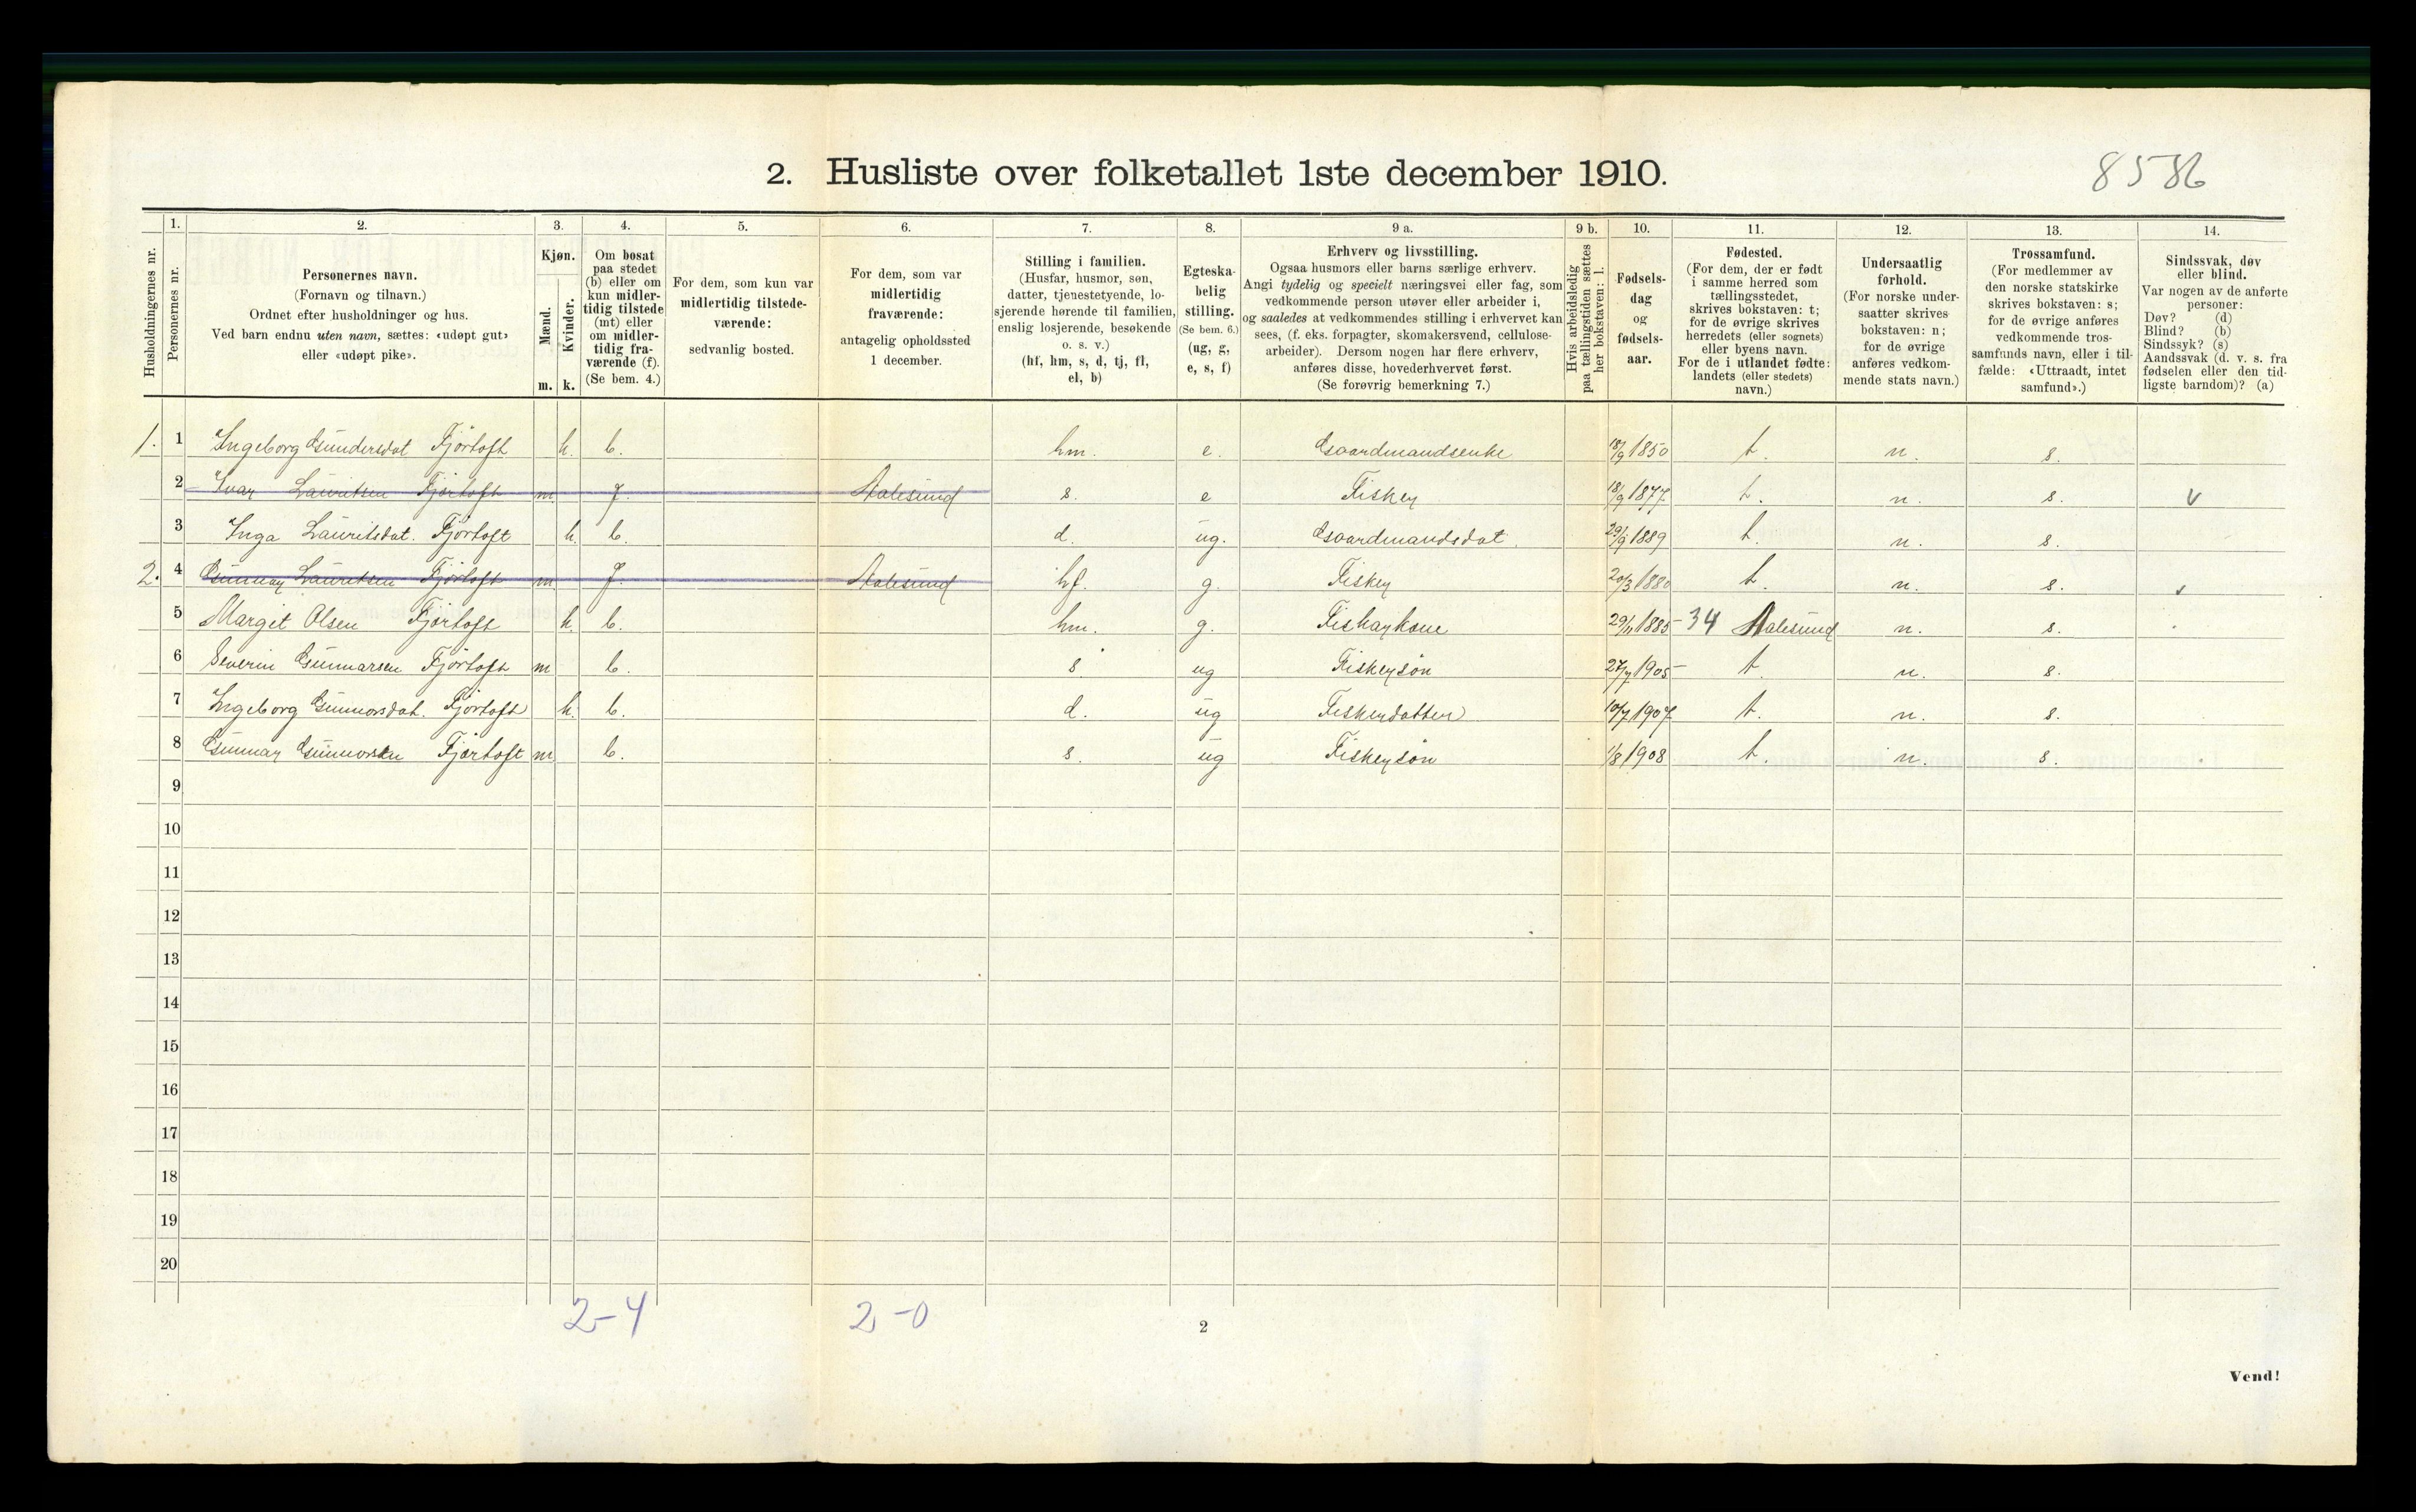 2. Husliste over folketallet 1ste december 1910.
8586
1. 2. 3. 4. 5. 6. 7. 8. 9 a. 9 b. 10. 11. 12. 13. 14.
Husholdningernes nr.
Personernes nr.
Personernes navn.
(Fornavn og tilnavn.)
Ordnet efter husholdninger og hus.
Ved barn endnu uten navn, sættes: «udøpt gut»
eller «udøpt pike».
Kjøn.
Mænd.
m.
Kvinder.
k.
Om bosat
paa stedet
(b) eller om
kun midler-
tidig tilstede
(mt) eller
om midler-
tidig fra-
værende (f).
(Se bem. 4.)
For dem, som kun var
midlertidig tilstede-
værende:
sedvanlig bosted.
For dem, som var
midlertidig
fraværende:
antagelig opholdssted
1 december.
Stilling i familien.
(Husfar, husmor, søn,
datter, tjenestetyende, lo-
sjerende hørende til familien,
enslig losjerende, besøkende
o. s. v.)
(hf, hm, s, d, tj, fl,
el, b)
Egteska-
belig
stilling.
(Se bem. 6.)
(ug, g,
e, s, f)
Erhverv og livsstilling.
Ogsaa husmors eller barns særlige erhverv.
Angi tydelig og specielt næringsvei eller fag, som
vedkommende person utøver eller arbeider i,
og saaledes at vedkommendes stilling i erhvervet kan
sees, (f. eks. forpagter, skomakersvend, cellulose-
arbeider). Dersom nogen har flere erhverv,
anføres disse, hovederhvervet først.
(Se forøvrig bemerkning 7.)
Hvis arbeidsledig
paa tællingstiden sættes
her bokstaven: l.
Fødsels-
dag
og
fødsels-
aar.
Fødested.
(For dem, der er født
i samme herred som
tællingsstedet,
skrives bokstaven: t;
for de øvrige skrives
herredets (eller sognets)
eller byens navn.
For de i utlandet fødte:
landets (eller stedets)
navn.)
Undersaatlig
forhold.
(For norske under-
saatter skrives
bokstaven: n;
for de øvrige
anføres vedkom-
mende stats navn.)
Trossamfund.
(For medlemmer av
den norske statskirke
skrives bokstaven: s;
for de øvrige anføres
vedkommende tros-
samfunds navn, eller i til-
fælde: «Uttraadt, intet
samfund».)
Sindssvak, døv
eller blind.
Var nogen av de anførte
personer:
Døv? (d)
Blind? (b)
Sindssyk? (s)
Aandssvak (d. v. s. fra
fødselen eller den tid-
ligste barndom)? (a)
1. 1 Ingeborg Gundersdat Fjørtoft k. b. hm. e. Gaardmandsenke 18/9 1850 t. n. s.
2 Ivar Lauritsen Fjørtoft m f. Aalesund s. e Fisker 18/9 1877 t. n. s. v
3 Inga Lauritsdat. Fjørtoft k. b. d. ug. Gaardmandsdat. 29/9 1889 t. n. s.
2. 4 Gunnar Lauritsen Fjørtoft m f. Aalesund hf. g. Fisker 20/3 1880 t. n. s. v
5 Margit Olsen Fjørtoft k. b. hm. g. Fiskarkone 29/11 1885 - 34 Aalesund n. s.
6 Severin Gunnarsen Fjørtoft m b. s ug Fiskersøn 27/7 1905 - t. n. s.
7 Ingeborg Gunnorsdat. Fjørtoft k. b. d. ug Fiskerdatter 10/7 1907 t. n. s.
8 Gunnar Gunnorsen Fjørtoft m b. s. ug Fiskersøn 1/8 1908 t. n. s.
9
10
11
12
13
14
15
16
17
18
19
20
2-4 2-0
2
Vend!